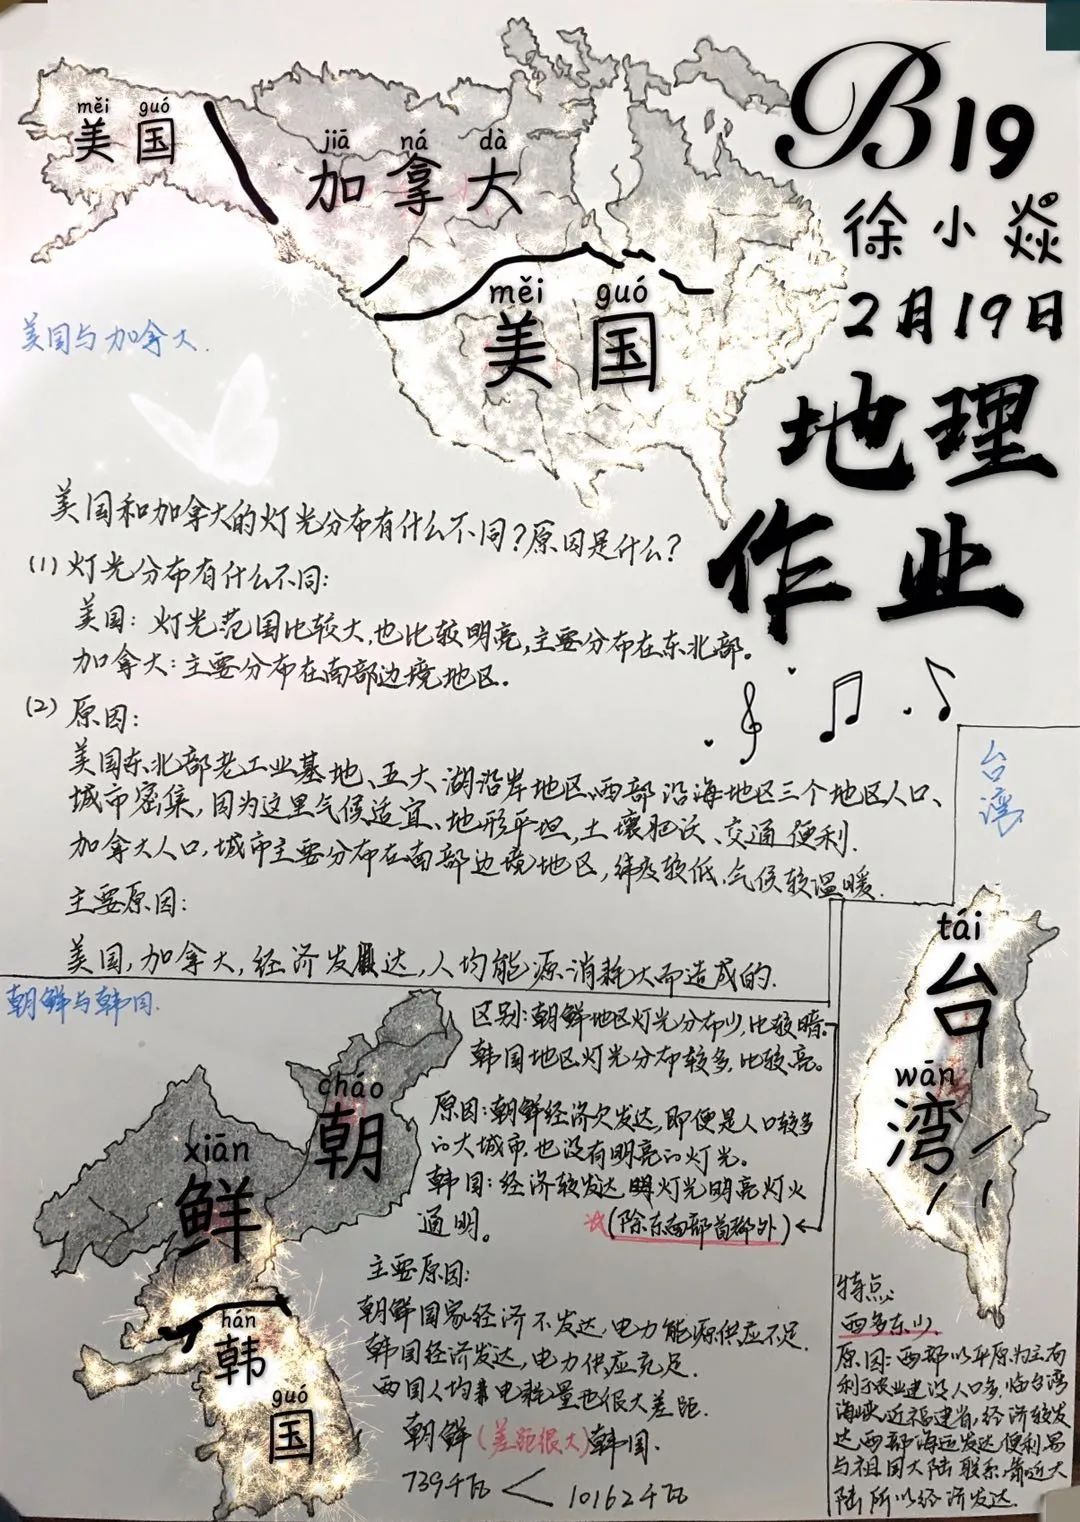 měi guó
美国
jiā ná dà
加拿大
měi guó
美国
B19
徐小焱
2月19日
地理
作业
美国与加拿大.
美国和加拿大的灯光分布有什么不同?原因是什么?
(1) 灯光分布有什么不同:
美国: 灯光范围比较大,也比较明亮,主要分布在东北部。
加拿大:主要分布在南部边境地区。
(2) 原因:
美国东北部老工业基地、五大湖沿岸地区、西部沿海地区三个地区人口、
城市密集,因为这里气候适宜、地形平坦,土壤肥沃、交通便利.
加拿大人口,城市主要分布在南部边境地区,纬度较低,气候较温暖.
主要原因:
美国,加拿大,经济发达,人均能源消耗大而造成的.
朝鲜与韩国.
cháo
朝
xiān
鲜
hán
韩
guó
国
区别:朝鲜地区灯光分布少,比较暗。
韩国地区灯光分布较多,比较亮。
原因:朝鲜经济欠发达,即便是人口较多
的大城市,也没有明亮的灯光。
韩国:经济较发达 灯光明亮灯火
通明。
(除东西部首都外)
主要原因:
朝鲜国家经济不发达,电力能源供应不足.
韩国经济发达,电力供应充足.
两国人均耗电量也很大差距.
朝鲜(差距很大)韩国.
739千瓦 < 10162千瓦
台湾
tái
台
wān
湾
特点:
西多东少.
原因:西部以平原为主有
利于农业建设,人口多,临台湾
海峡,近福建省,经济较发
达,西部海运发达,便利易
与祖国大陆联系,靠近大
陆所以经济发达.